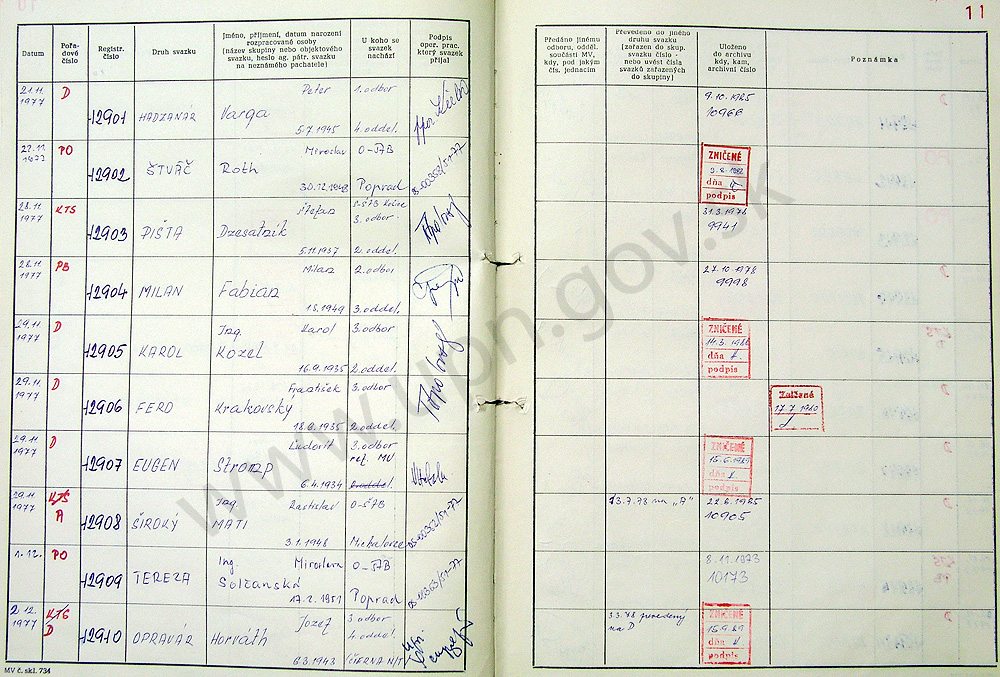 11
Datum
Pořadové číslo
Registr. číslo
Druh svazku
Jméno, příjmení, datum narození rozpracované osoby (název skupiny nebo objektového svazku, heslo ag. pátr. svazku na neznámého pachatele)
U koho se svazek nachází
Podpis oper. prac. který svazek přijal
Předáno jinému odboru, odděl. součásti MV, kdy, pod jakým čís. jednacím
Převedeno do jiného druhu svazku (zařazen do skup. svazku číslo - nebo uvést čísla svazků zařazených do skupiny)
Uloženo do archivu kdy, kam, archivní číslo
Poznámka
21.11 1977 D 12901 HADZANÁR Peter Varga 5.7.1945 1. odbor 4. oddel.
9.10.1985 10966
22.11. PO 12902 ŠTVÁČ Miroslav Roth 30.12.1948 O-ŠTB Poprad
ZNIČENÉ dňa podpis
28.11 1977 KTS 12903 PIŠTA Štefan Dzesatnik 5.11.1937 3. odbor 2. oddel.
31.3.1978 9941
28.11 1977 PB 12904 MILAN Milan Fabian 1949 2. odbor 3. oddel.
27.10.1978 9998
29.11 1977 D 12905 KAROL Ing. Karol Kozel 16.9.1935 3. odbor 2. oddel.
ZNIČENÉ dňa podpis
29.11. 1977 D 12906 FERO František Krakovský 18.6.1935 3. odbor 2. oddel.
29.11 1977 D 12907 EUGEN Ľudovít Stromp 6.4.1934 3. odbor ref. MV
ZNIČENÉ 15.6.1989 dňa podpis
29.11 1977 KTS A 12908 ŠIROKÝ Ing. Rastislav MATI 3.1.1948 O-ŠTB Michalovce
13.7.78 na "A"
10905
1.12. PO 12909 TEREZA Ing. Miroslava Soltanská 17.2.1951 O-ŠTB Poprad
10173
2.12. 1977 KTS D 12910 OPRAVÁR Jozef Horváth 6.3.1943 3. odbor 4. oddel. ČIERNA N/T
3.3.78 prevedený na D
ZNIČENÉ 15.9.89 dňa podpis
MV č. skl. 734
www.upn.gov.sk